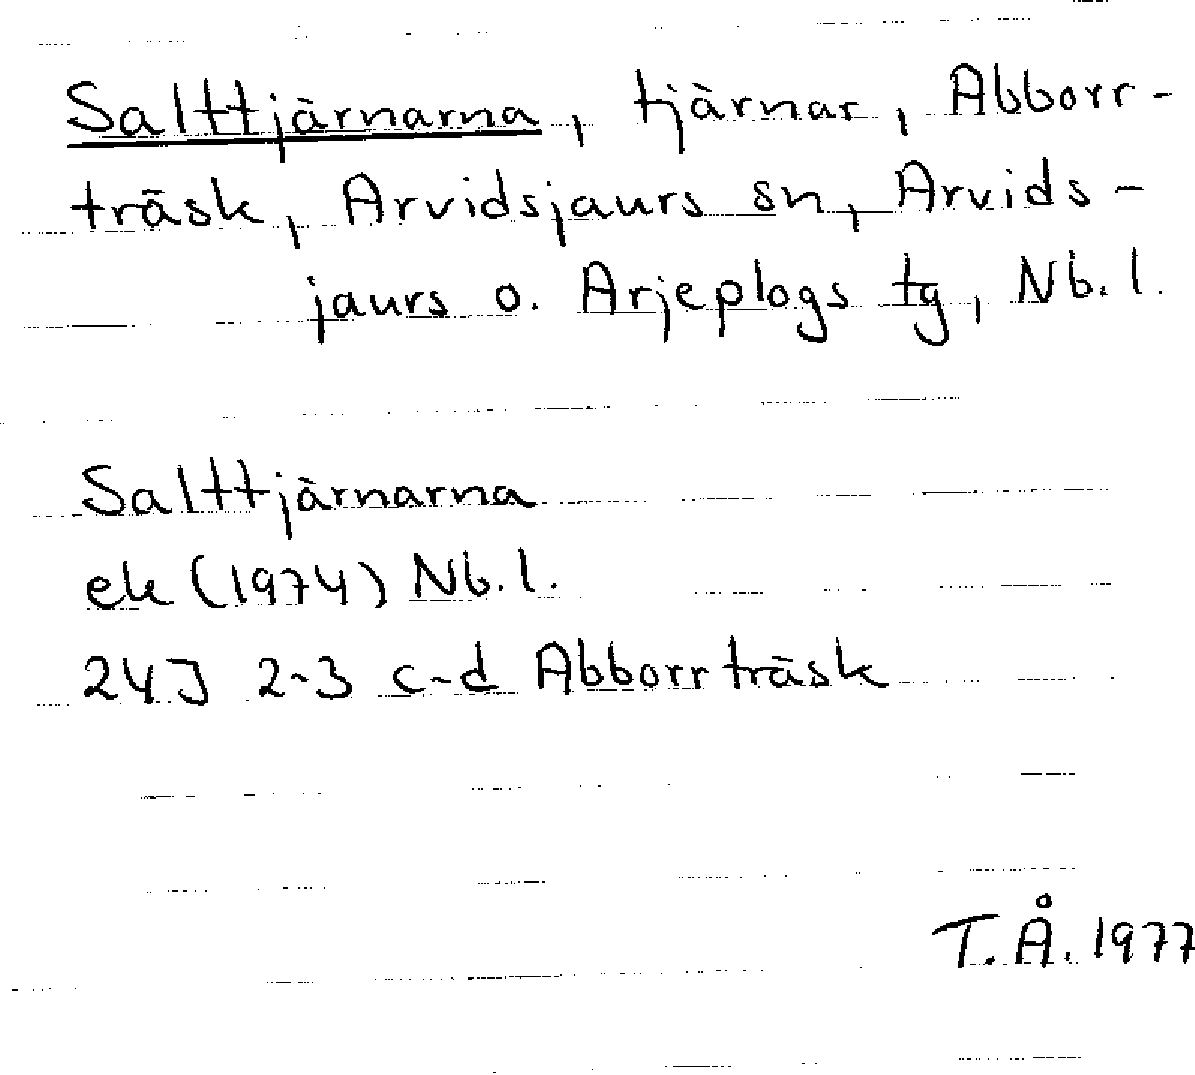 Salttjärnarna, tjärnar, Abborr-
träsk, Arvidsjaurs sn, Arvids-
jaurs o. Arjeplogs tg, Nb. l.
Salttjärnarna
ek (1974) Nb. l.
24J 2-3 c-d Abborrträsk
T.Å. 1977